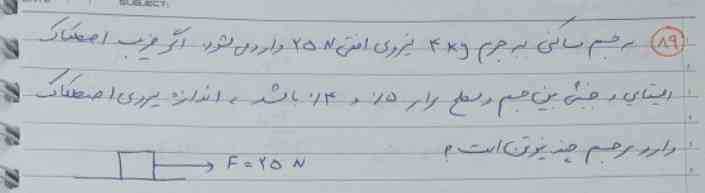 SUBJECT:
۸۹) بر جسم ساکنی به جرم ۴kg نیروی افقی ۲۵N وارد می شود. اگر ضریب اصطکاک
ایستایی و جنبشی بین جسم و سطح برابر ۰/۵ و ۰/۴ باشد، اندازه نیروی اصطکاک
وارد بر جسم چند نیوتن است؟
F = ۲۵ N